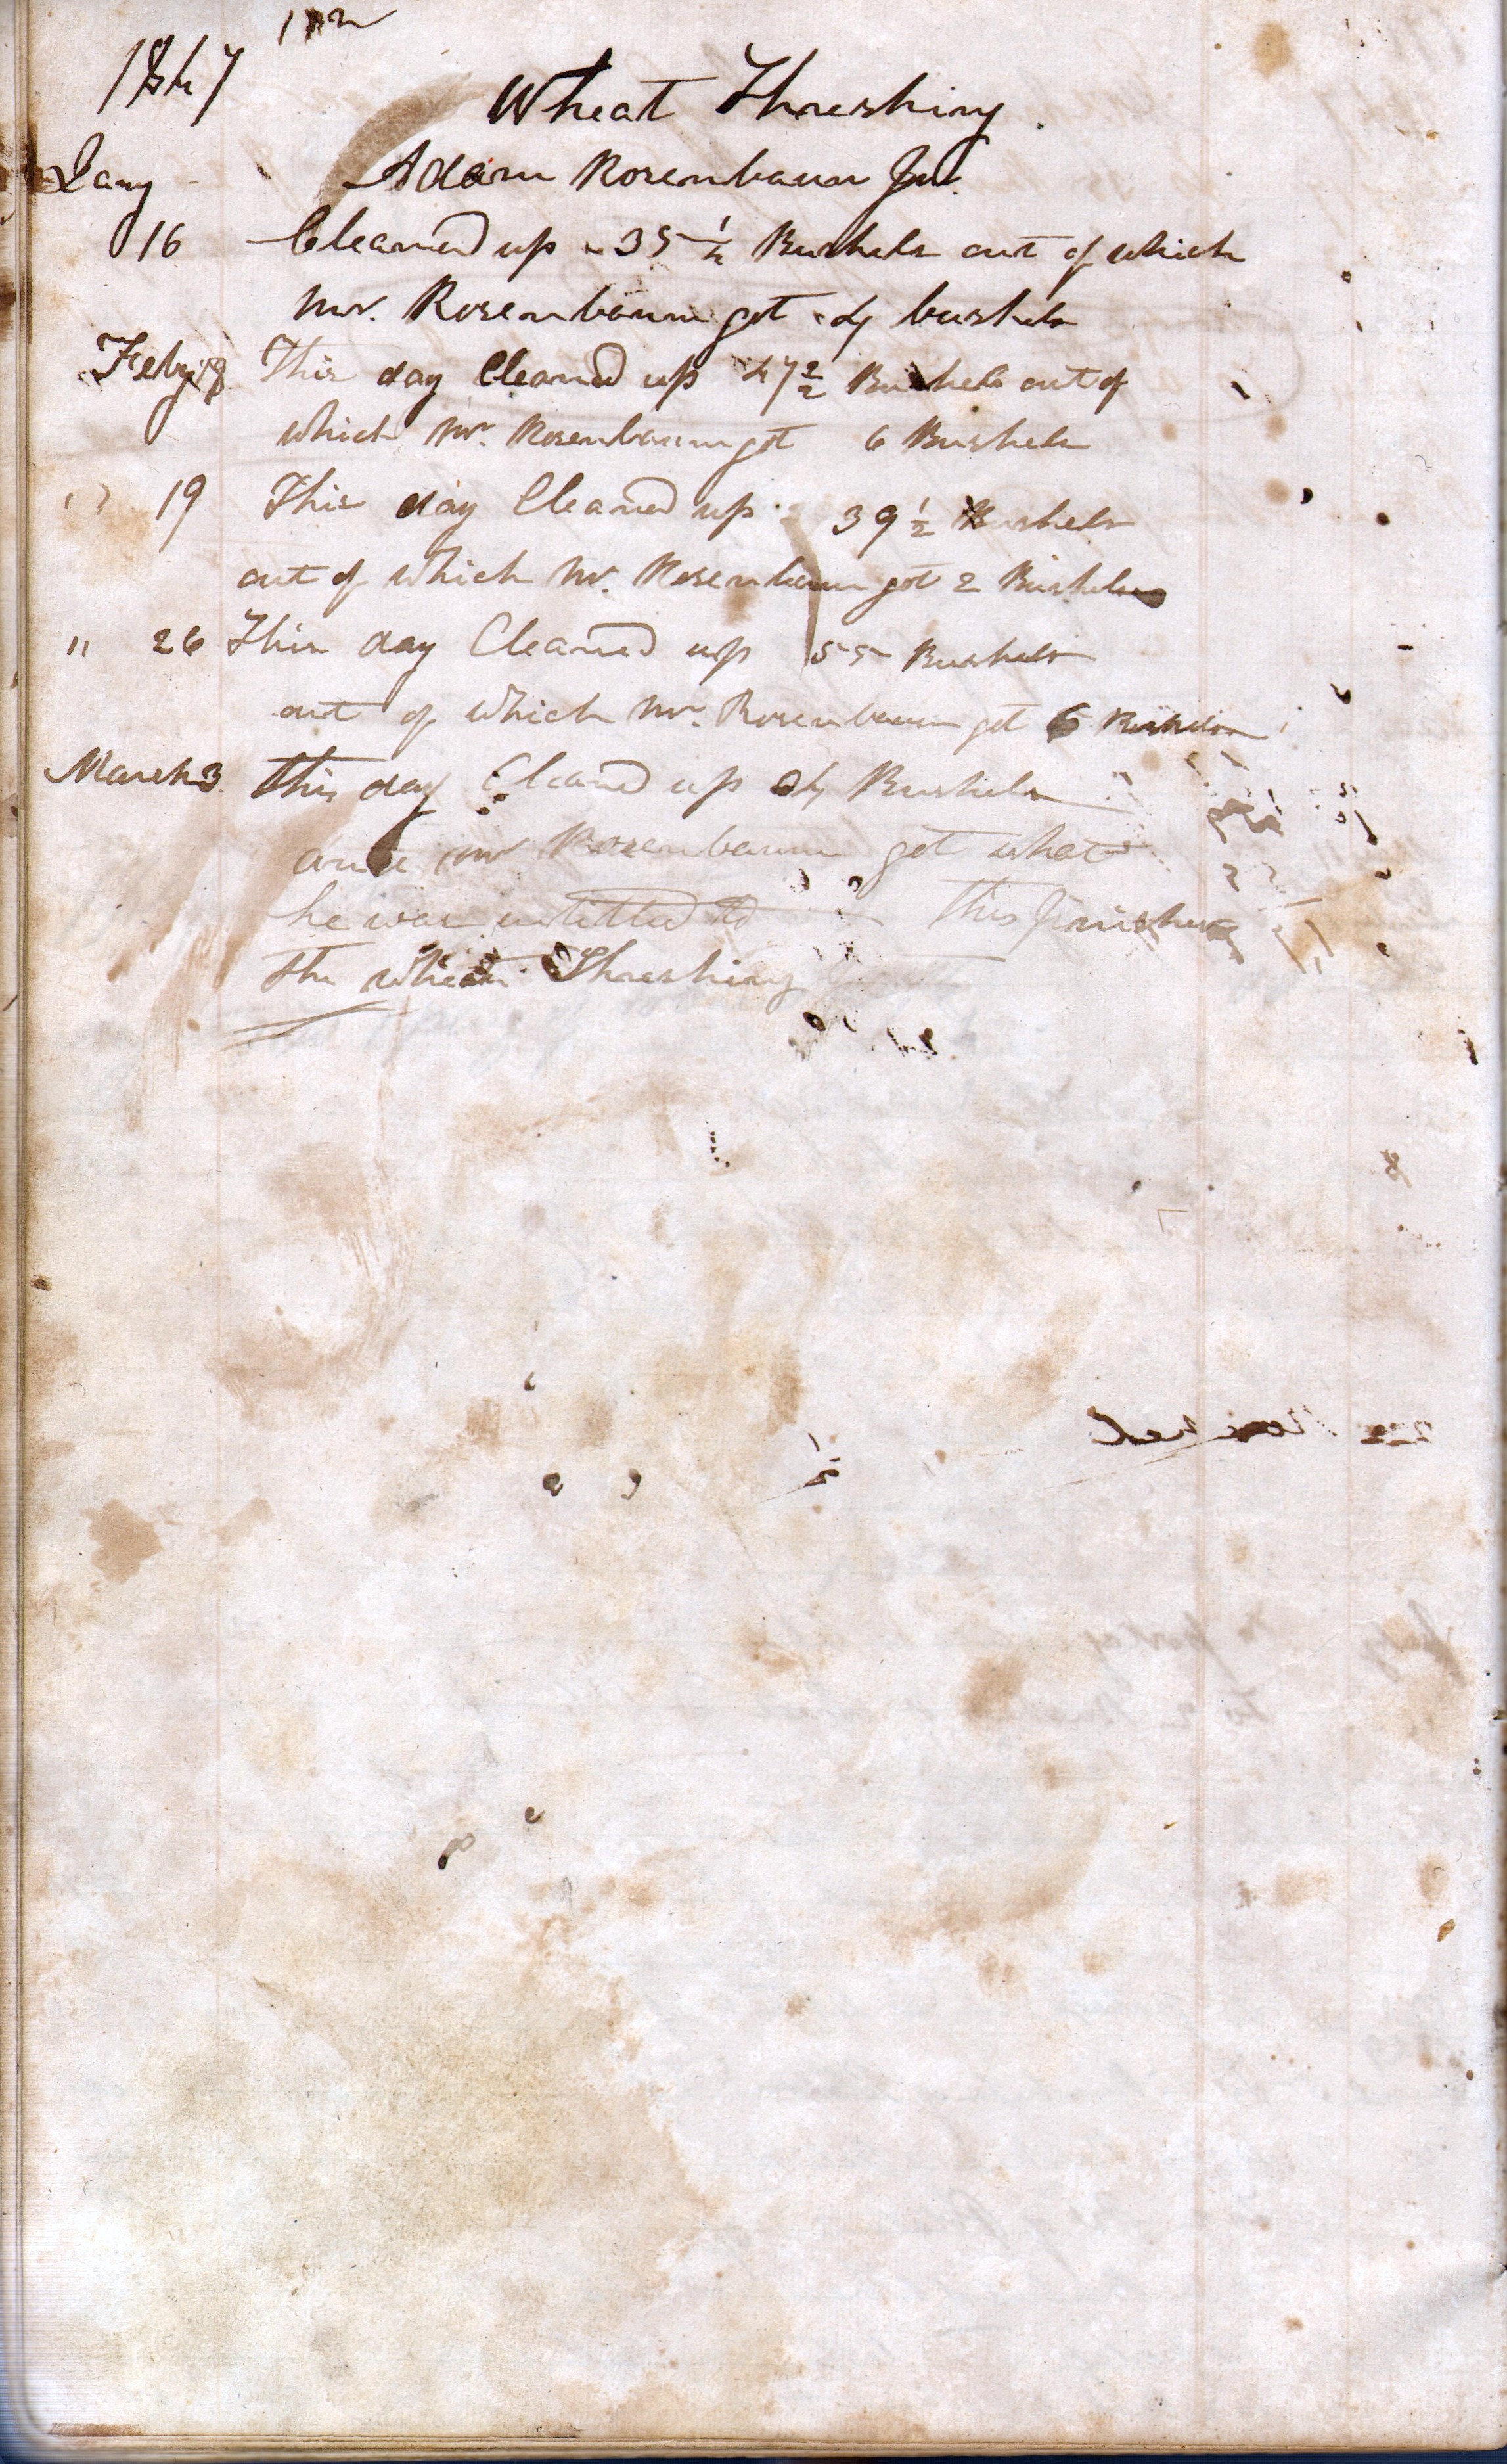 1847
Wheat Threshing
Jany Adam Rosenbaum Jnr.
16 Cleaned up 35 1/2 Bushels out of which
Mr. Rosenbaum got 4 bushels
Feby This day Cleaned up 47 2/2 Bushels out of
which Mr. Rosenbaum got 6 Bushels
19 This day Cleaned up 39 1/2 Bushels
out of which Mr. Rosenbaum got 2 Bushels
" 26 This day Cleaned up 55 Bushels
out of which Mr. Rosenbaum got 6 Bushels
March 3 this day Cleaned up Bushels
and Mr Rosenbaum got what
he was intitled to This finishes
the wheat Threshing